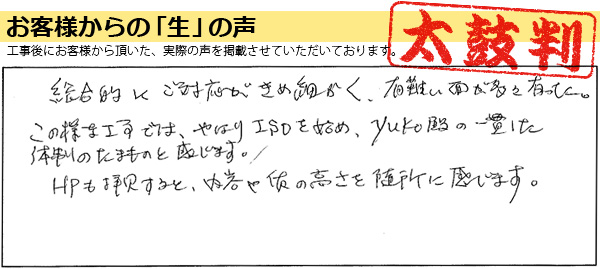 お客様からの「生」の声
太鼓判
工事後にお客様から頂いた、実際の声を掲載させていただいております。
総合的にご対応がきめ細かく、有難い面が多々有った。
この様な工事では、やはりISOを始め、YUKO殿の一貫した
体制のたまものと感じます。
HPも拝見すると、内容や質の高さを随所に感じます。